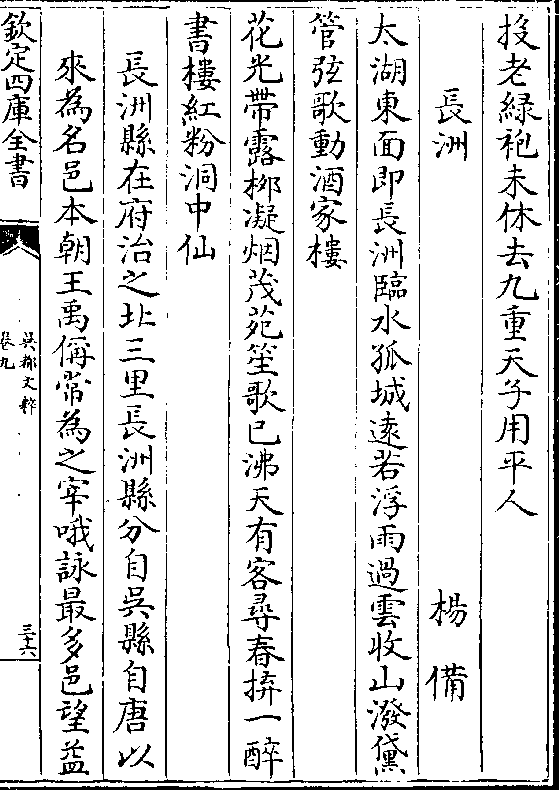 投老緑袍未休去九重天子用平人
長洲　楊備
太湖東面即長洲臨水孤城逺若浮雨過雲收山潑黛
管弦歌動酒家樓
花光帶露栁凝烟茂苑笙歌已沸天有客尋春拚一醉
書樓紅粉洞中仙
長洲縣在府治之北三里長洲縣分自吳縣自唐以
來為名邑本朝王禹偁常為之宰哦詠最多邑望益
欽定四庫全書
吳都文粹
卷九
三十六